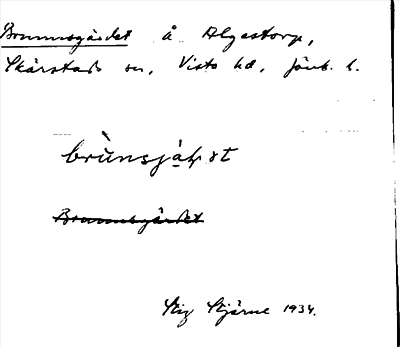 Brunnsgärdet å Algestorp,
Skärstads sn, Vista hd, Jönk. l.
brùnsjáḷət
Brunnsgärdet
Stig Stjärne 1934.